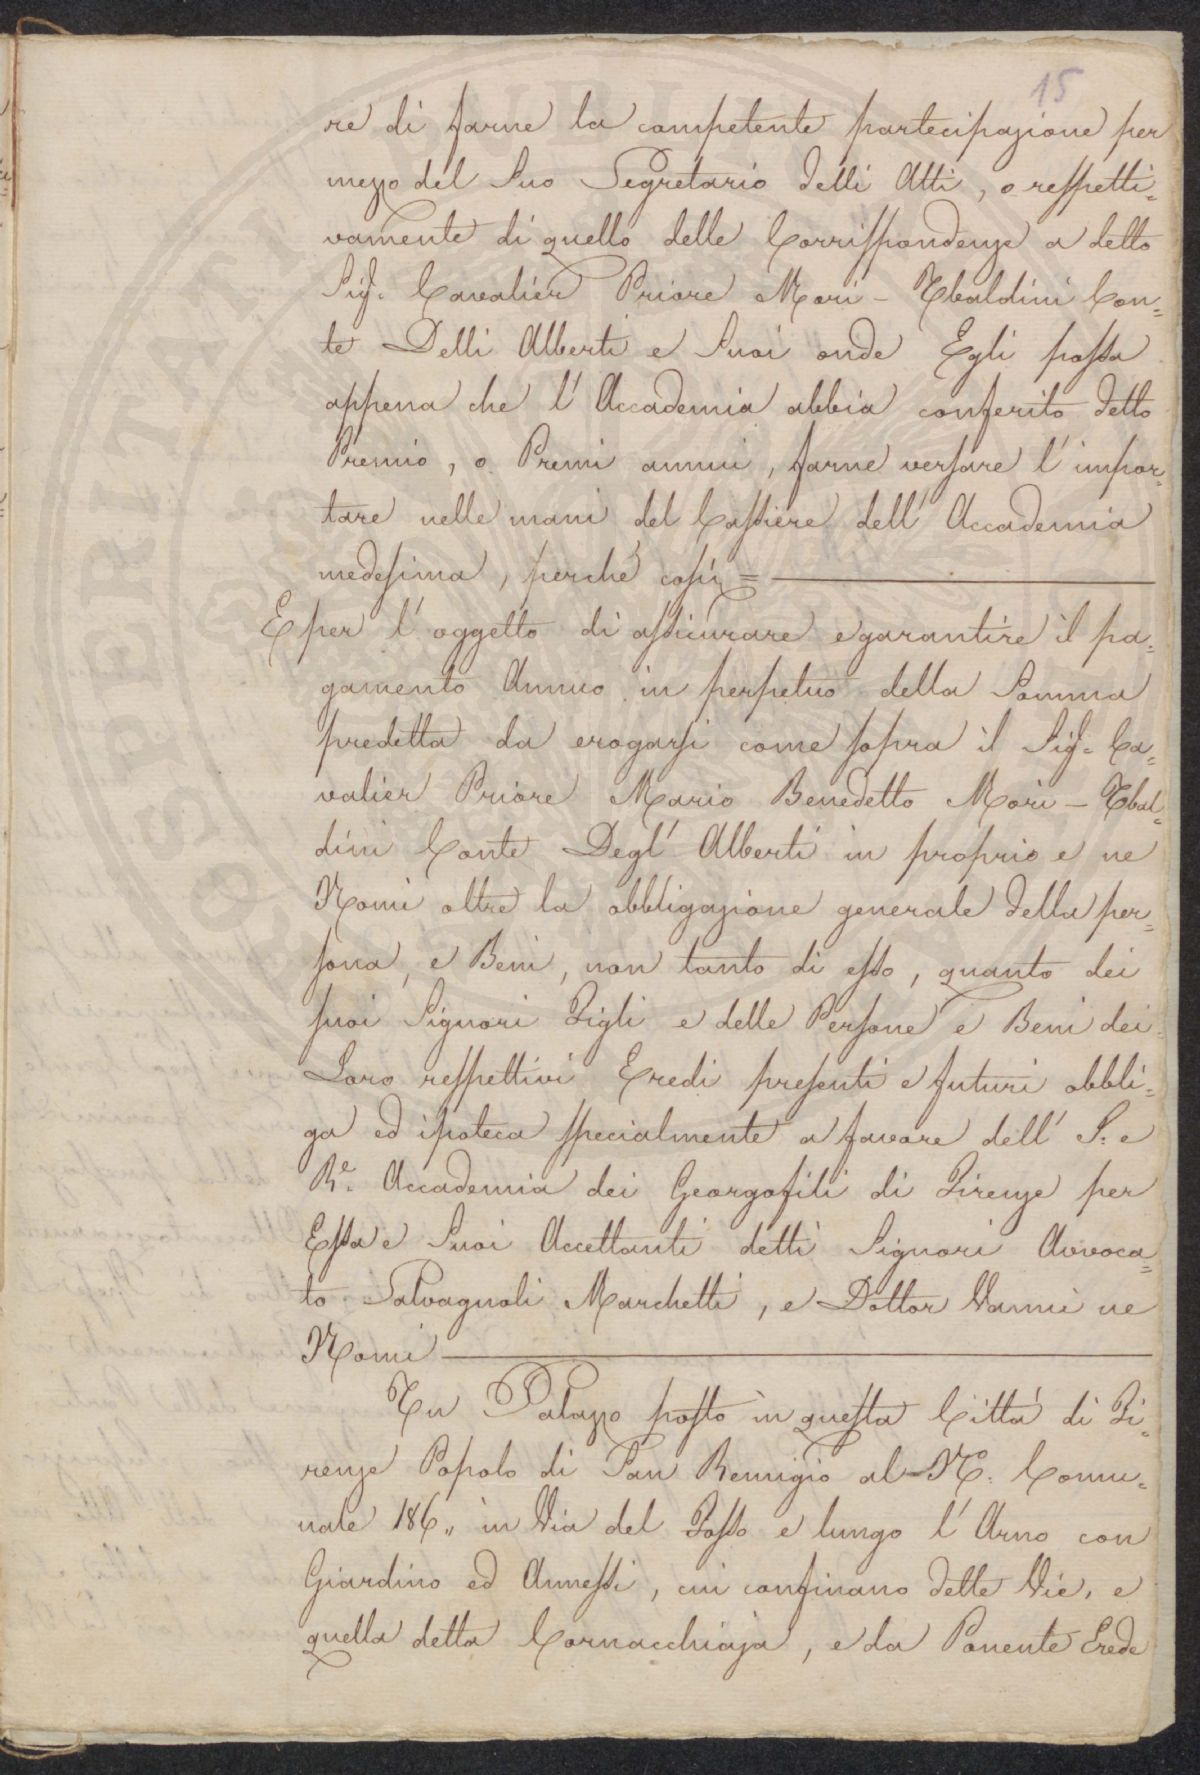 15
re di farne la competente partecipazione per
mezzo del Suo Segretario delli Atti, o respetti=
vamente di quello delle Corrispondenze a detto
Sigr. Cavalier Priore Mori - Ubaldini Con=
te Delli Alberti e Suoi onde Egli possa
appena che l' Accademia abbia conferito detto
Premio, o Premi annui, farne versare l' impor=
tare nelle mani del Cassiere dell' Accademia
medesima, perchè così =
E per l' oggetto di assicurare e garantire il pa=
gamento Annuo in perpetuo della Somma
predetta da erogarsi come sopra il Sigr. Ca=
valier Priore Mario Benedetto Mori - Ubal=
dini Conte Degl' Alberti in proprio e ne
Nomi oltre la obbligazione generale della per=
sona, e Beni, non tanto di esso, quanto dei
suoi Signori Figli e delle Persone e Beni dei
Loro respettivi Eredi presenti e futuri obbli=
ga ed ipoteca specialmente a favore dell' I. e
Re. Accademia dei Georgofili di Firenze per
Essa e Suoi Accettanti detti Signori Avvoca=
to Salvagnoli Marchetti, e Dottor Vanni ne
Nomi
Un Palazzo posto in questa Città di Fi=
renze Popolo di San Remigio al N. Comu=
nale 186,, in Via del Fosso e lungo l' Arno con
Giardino ed Annessi, cui confinano dette Vie, e
quella detta Cornacchiaja, e da Ponente Erede